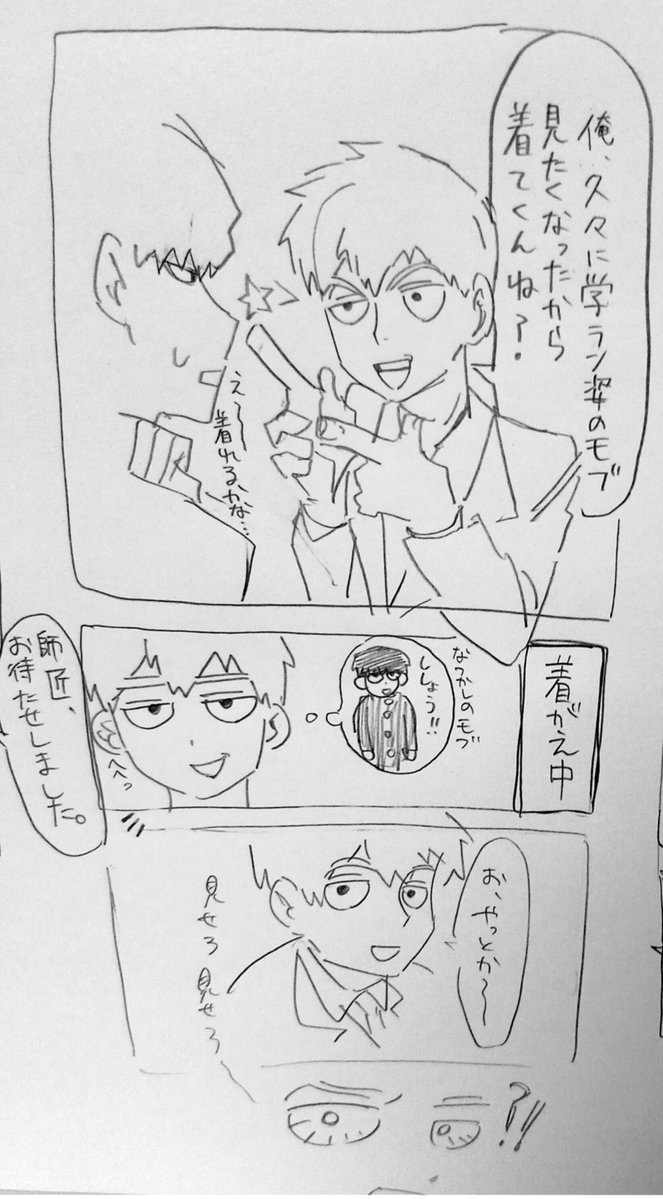 俺、久々に学ラン姿のモブ
見たくなったから
着てくんね?
え〜
着れるかな…
着がえ中
なつかしのモブ
ししょう!!
へへっ
師匠、
お待たせしました。
お、やっとか〜〜
見せろ見せろ
?!!